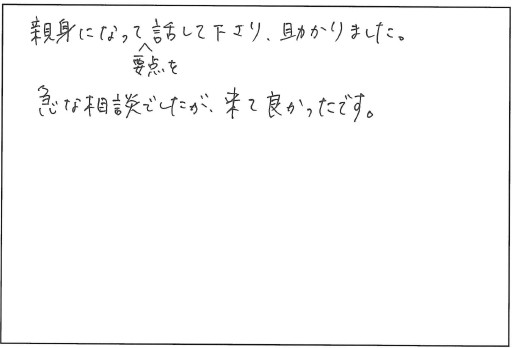 親身になって要点を話して下さり、助かりました。
急な相談でしたが、来て良かったです。